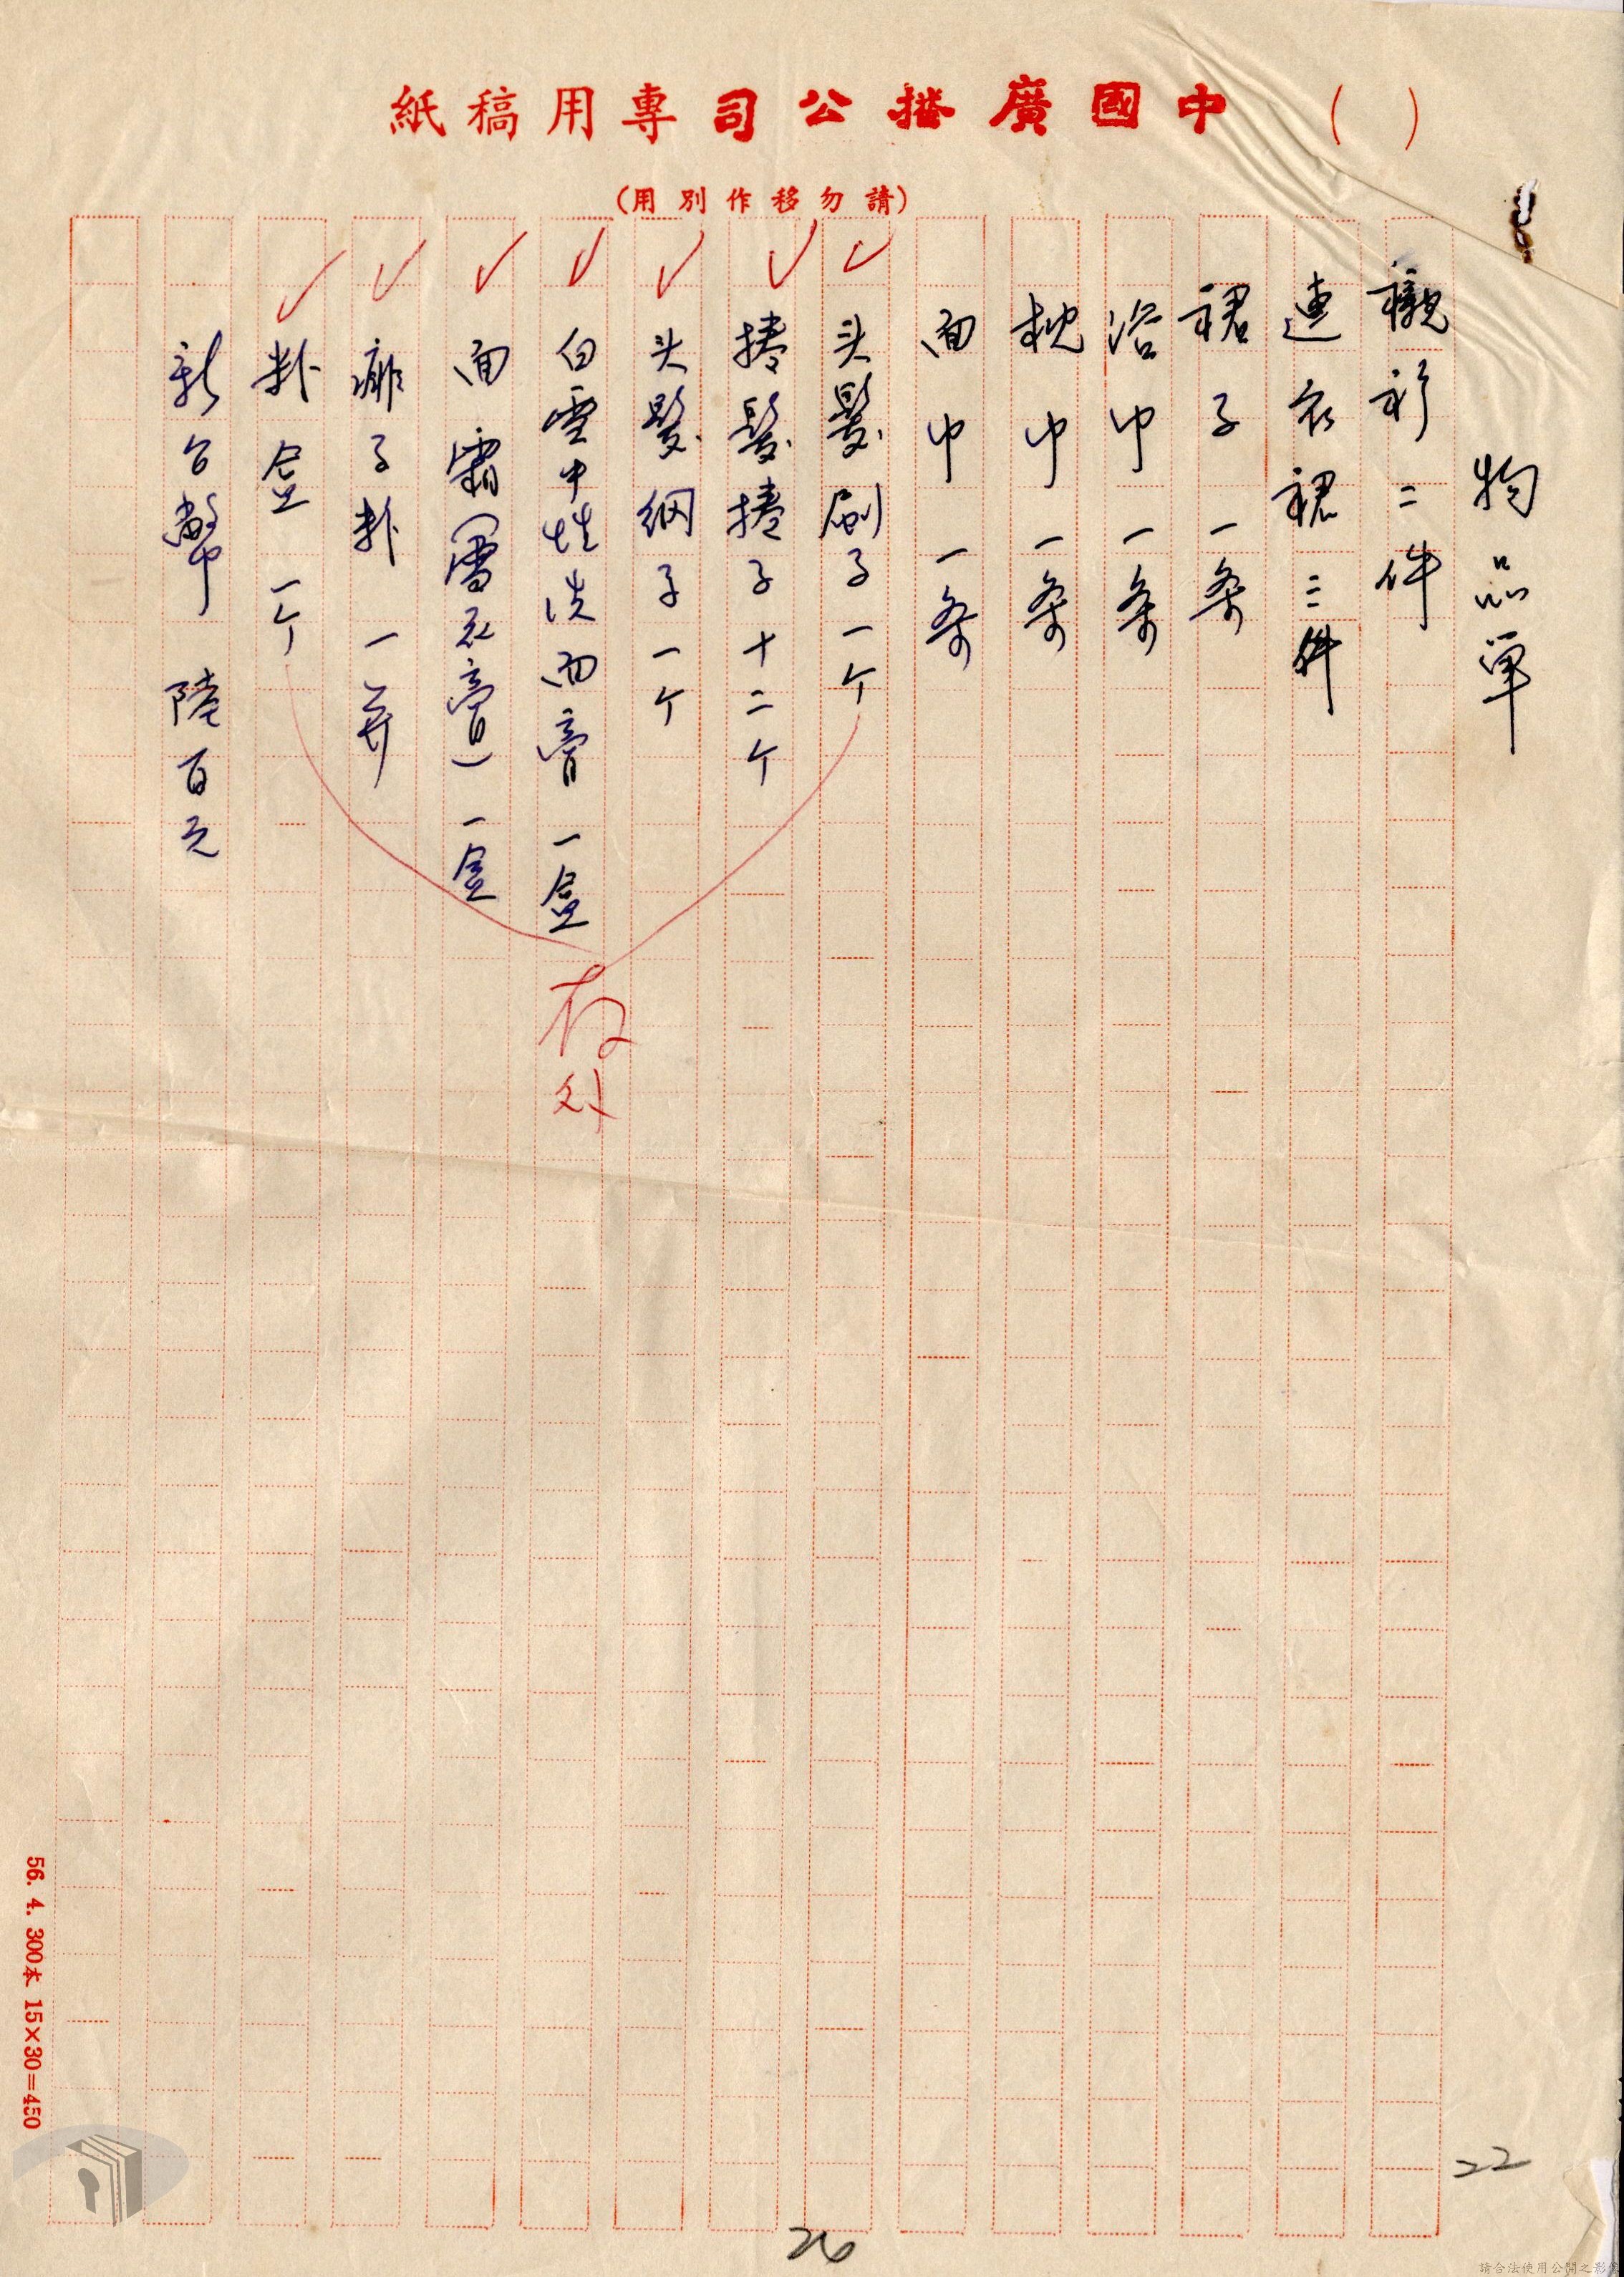 ( )中國廣播公司專用稿紙
(請勿移作別用)
物品單
襯衫二件
連衣裙三件
裙子一条
浴巾一条
枕巾一条
面巾一条
头髮刷子一个
捲髮捲子十二个
头髮網子一个
白雪中性洗面膏一盒
面霜(雪花膏)一盒
痱子粉一
粉盒一个
新台幣 陸百元
存
56. 4. 300本 15×30=450
22
26
請合法使用公開之影像